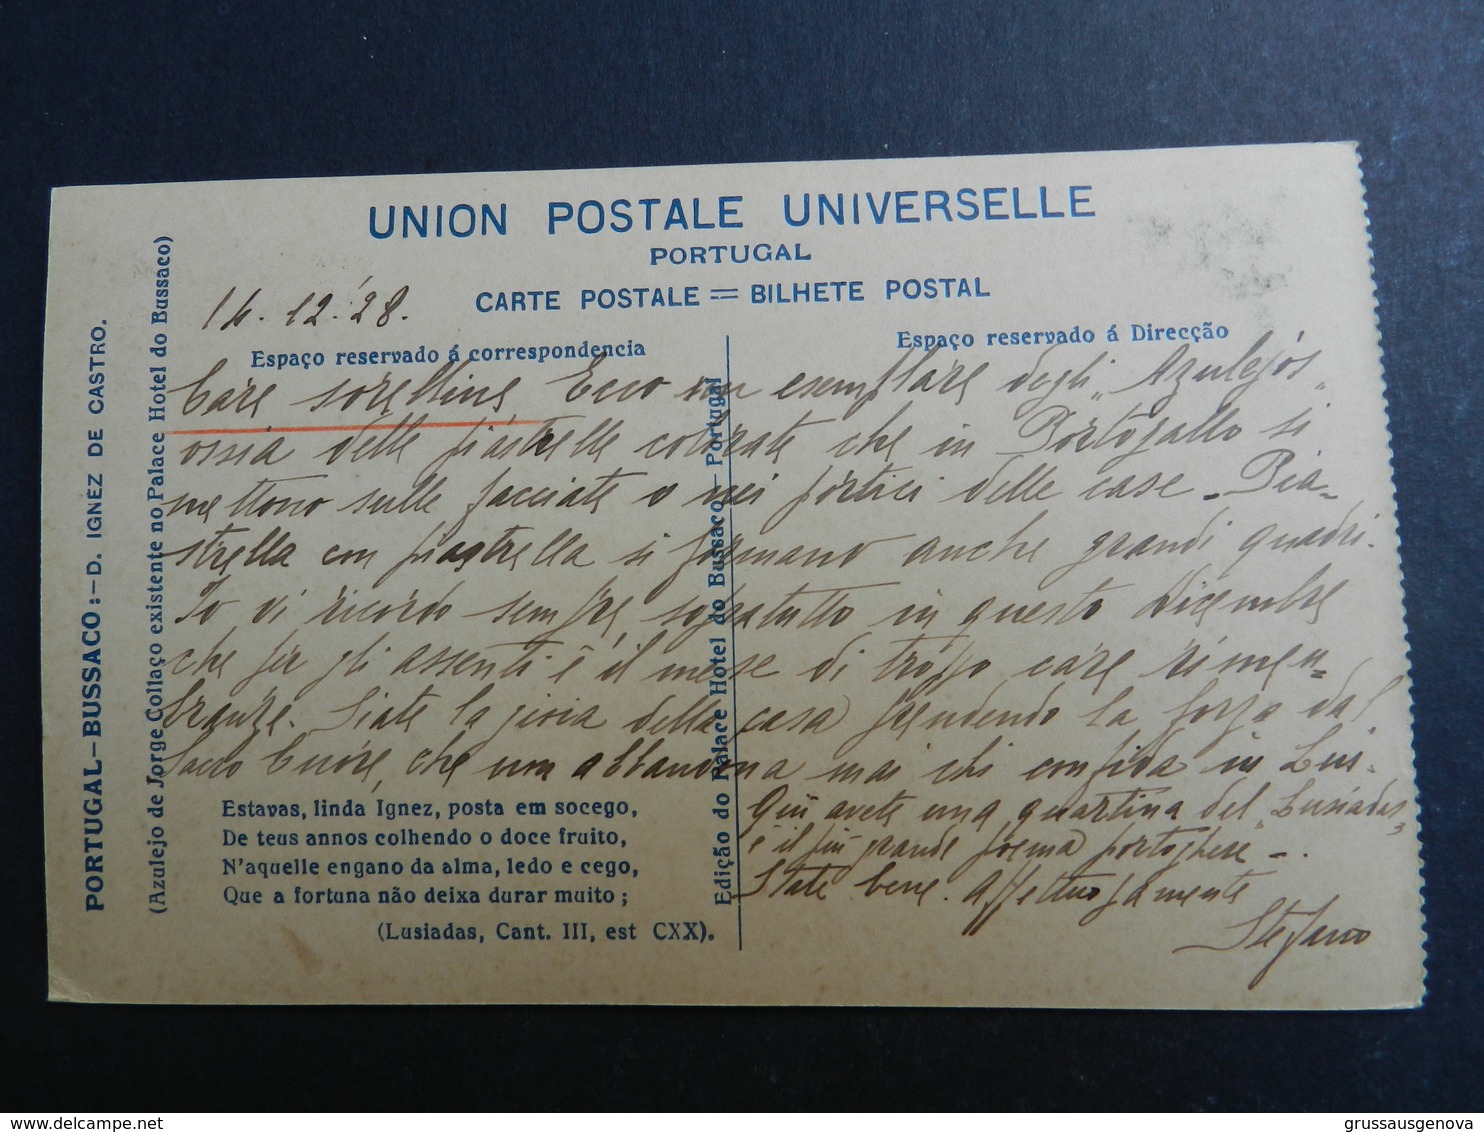 UNION POSTALE UNIVERSELLE
PORTUGAL
CARTE POSTALE = BILHETE POSTAL
14.12.'28.
Espaço reservado á correspondencia
Espaço reservado á Direcção
Care sorelline Ecco un esemplare degli "Azulejós"
ossia delle piastrelle colorate che in Portogallo si
mettono sulle facciate o nei portici delle case - Pia-
strella con piastrella si formano anche grandi quadri.
Io vi ricordo sempre sopratutto in questo Dicembre
che per gli assenti è il mese di troppo care rimem-
branze. Siate la gioia della casa prendendo la forza dal
Sacro Cuore, che non abbandona mai chi confida in Lui.
Qui avete una quartina del "Lusiadas"
è il più grande poema portoghese -.
State bene. Affettuosamente
Stefano
Estavas, linda Ignez, posta em socego,
De teus annos colhendo o doce fruito,
N'aquelle engano da alma, ledo e cego,
Que a fortuna não deixa durar muito;
(Lusiadas, Cant. III, est CXX).
PORTUGAL-BUSSACO:-D. IGNEZ DE CASTRO.
(Azulejo de Jorge Collaço existente no Palace Hotel do Bussaco)
Edição do Palace Hotel do Bussaco-Portugal
delcampe.net
grussausgenova